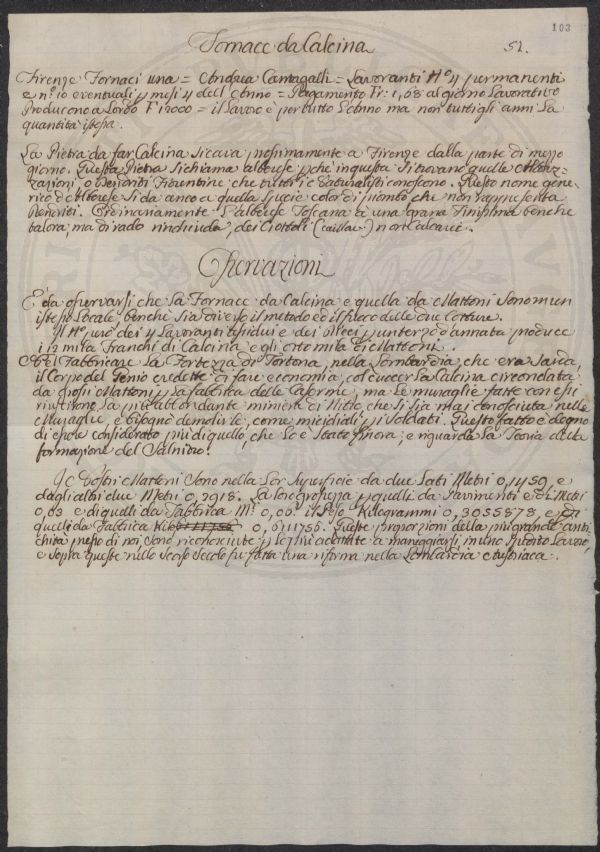 103
Fornace da Calcina 51.
Firenze Fornaci una = Andrea Cantagalli = Lavoranti N.° 4 permanenti
e n.° 10 eventuali p mesi 4 dell'Anno = Pagamento Fr: 1,68 al giorno Lavorativo
Producono a Lordo Fr 12000 = il Lavoro è per tutto l'Anno ma non tutti gli anni la
quantità istessa.
La Pietra da far Calcina si cava prossimamente a Firenze dalla parte di mezzo
giorno. Questa Pietra si chiama alberese p chè in questa si trovano quelle
-razioni, o Dendriti Fiorentine che tutti i Naturalisti conoscono. Questo nome gene-
rico d'Alberese si da anco a quella specie color di piombo che non rappresenta
Dendriti. Ordinariamente l'alberese Toscana à una grana finissima benchè
talora, ma di rado rinchiuda, dei Ciottoli (caillou) non Calcarei.
Osservazioni
È da osservarsi che la Fornace da Calcina e quella da Mattoni sono in un
istesso Locale, benchè sia diverso il metodo ed il fuoco delle due Cotture.
Il N.° però dei 4 Lavoranti assidui e dei dieci p un terzo d'annata produce
i 12 mila Franchi di Calcina e gli otto mila di Mattoni.
Nel Fabbricare la Fortezza di Tortona, nella Lombardia, che era Sarda,
il Corpo del Genio credette di fare economia, col cuocer la Calcina circondata
da grossi Mattoni p la fabbrica delle Caserme, ma le muraglie fatte con essi
riuscirono la più abbondante miniera di Nitro che si sia mai conosciuta nelle
Muraglie, e bisognò demolirle, come micidiali p i Soldati. Questo fatto è degno
di essere considerato più di quello, che lo è stato finora; e riguarda la Teoria della
formazione del Salnitro.
I nostri Mattoni sono nella lor superficie da due lati Metri 0,1459, e
dagli altri due Metri 0,2918. La loro grossezza p quelli da Pavimenti è di Metri
0,03 e di quelli da Fabbrica M.i 0,06 il Peso Kilogrammi 0,3055878, e di
quelli da Fabbrica 0,6111755. Queste proporzioni della più grande anti
chità presso di noi sono riconosciute p le più adattate a maneggiarsi in uno spedito Lavoro,
e sopra queste nello scorso secolo fu fatta una riforma nella Lombardia Austriaca.